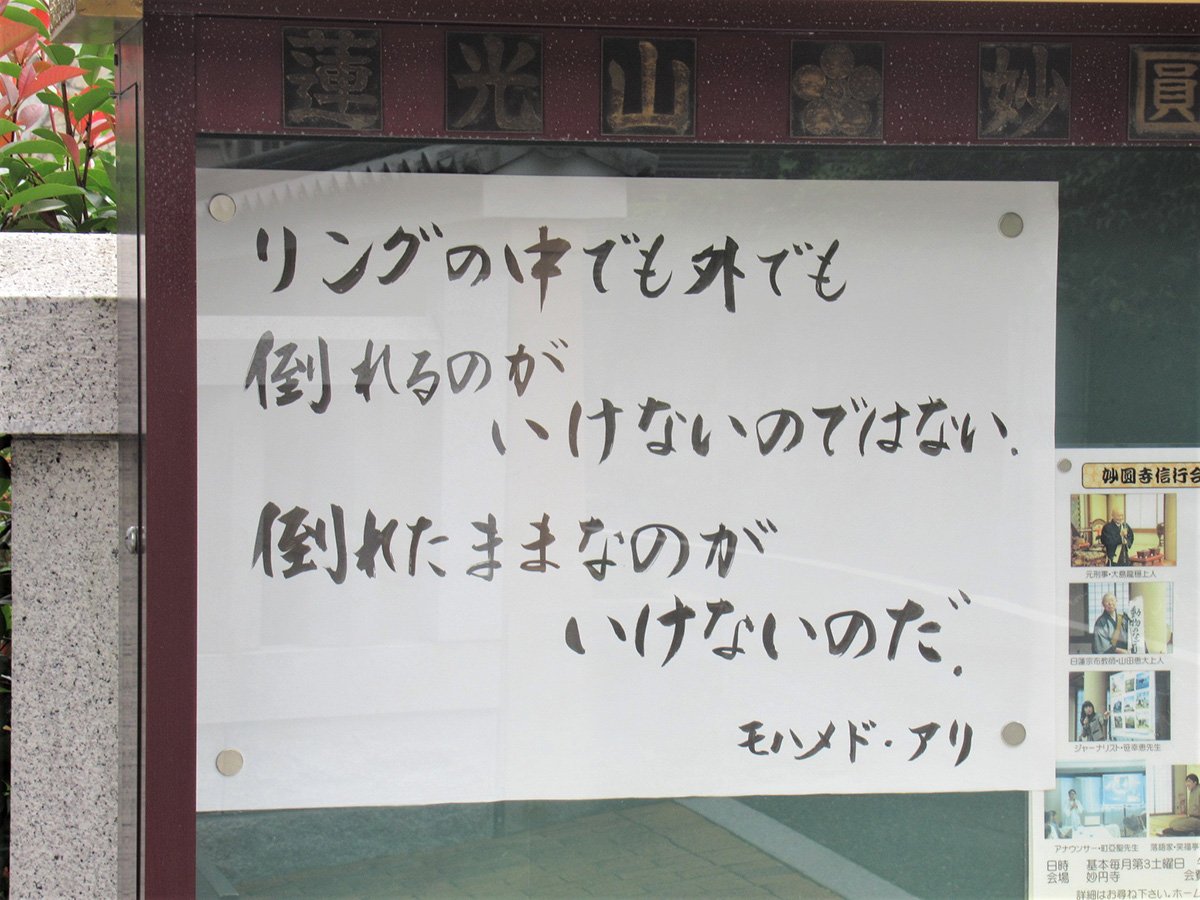 蓮光山 妙圓
リングの中でも外でも
倒れるのが
いけないのではない.
倒れたままなのが
いけないのだ.
モハメド・アリ
妙圓寺信行会
元刑事・大島龍穏上人
日蓮宗布教師・山田恵大上人
ジャーナリスト・笹幸恵先生
アナウンサー・町亞聖先生
落語家・笑福亭
日時 基本毎月第3土曜日
会場 妙円寺
会費
詳細はお尋ね下さい。ホーム